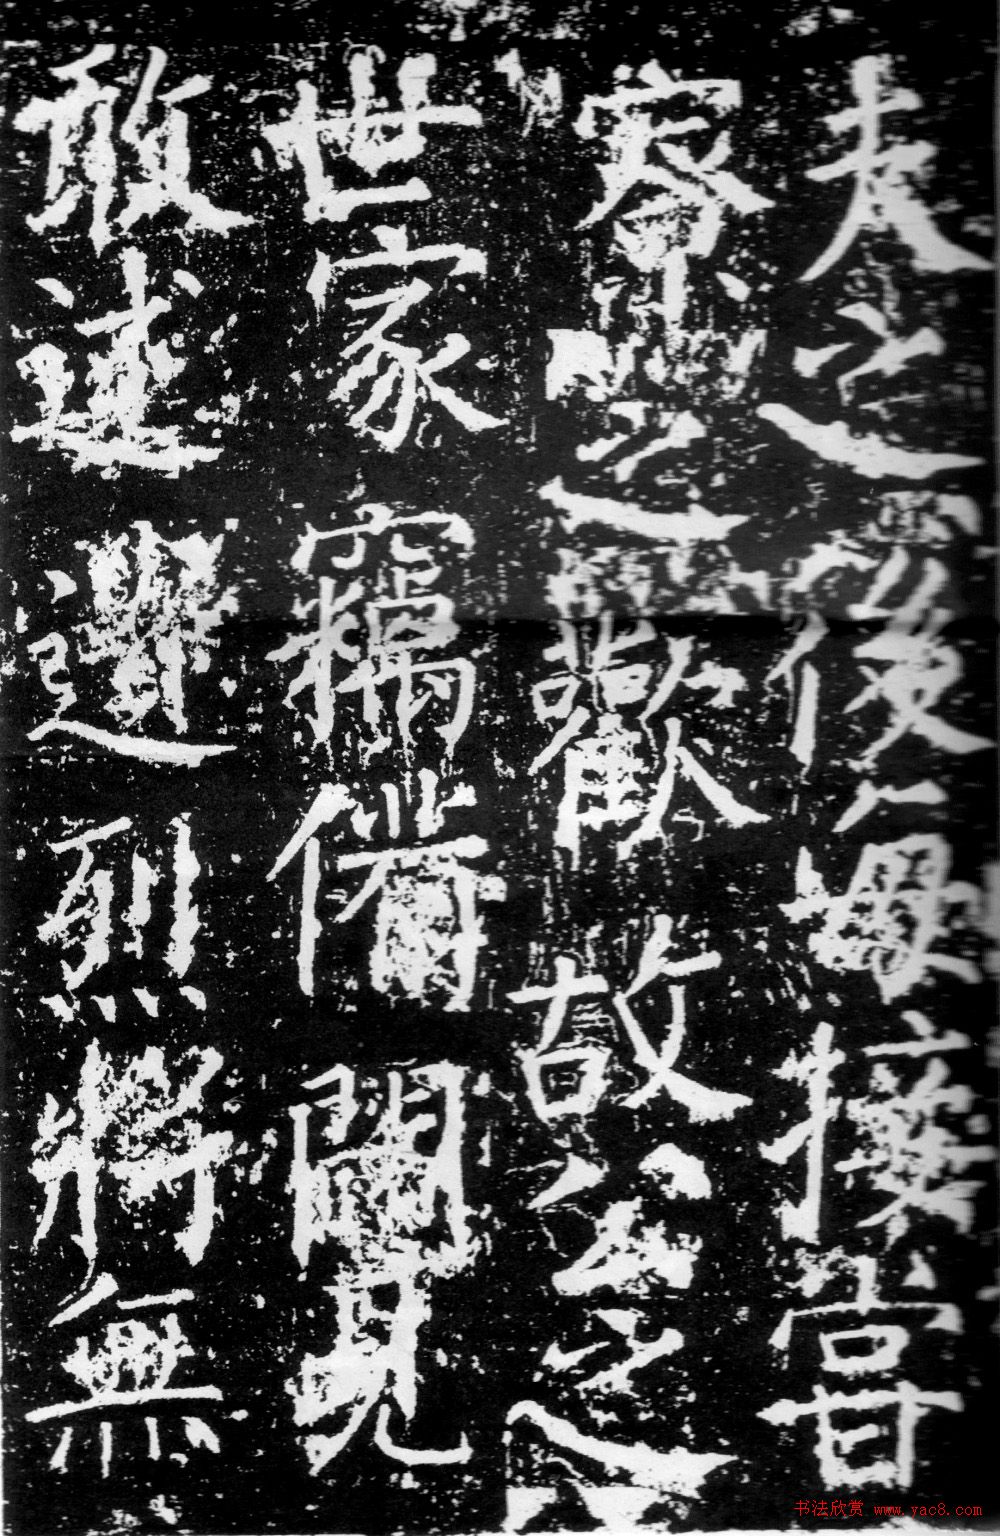 夫之後每接嘗
寮之歡故公之
世家竊備聞見
敢述遺烈將無
书法欣赏 www.yac8.com